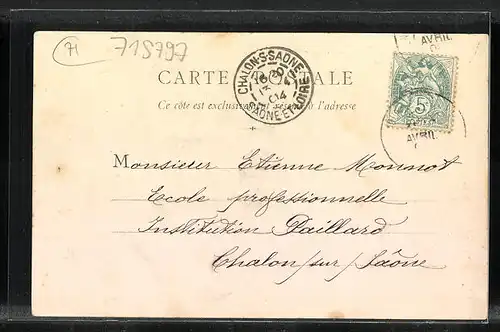 71 715797
AVRIL
CHALON-S-SAONE
SAONE-ET-LOIRE
04
CARTE POSTALE
Ce côté est exclusivement réservé à l'adresse
5c
AVRIL
Monsieur Etienne Monnot
Ecole professionnelle
Institution Paillard
Chalon/sur/Saône